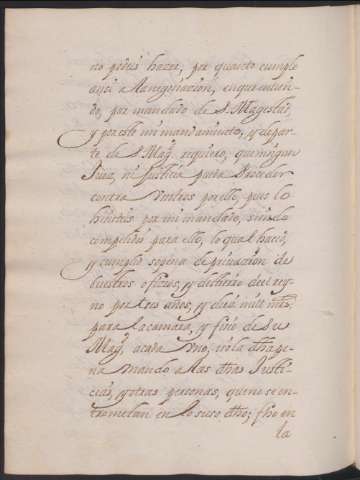 no podeis hazer, por quanto cumple
assi a la negoziazion, en que enten
do, por mandado de S. Magestad,
y por este mi mandamiento, y de par
te de S. Mag. requiero, que ningun
Juez, ni Justicia pueda proceder
contra vosotros por ello, pues lo
hizisteis por mi mandado, siendo
compelidos para ello, lo qual haced,
y cumplid sopena de privacion de
vuestros oficios, y destierro deel rey-
no por tres años, y diez mil mrs.
para la camara, y fisco de Su
Mag. a cada uno, so la dha pe-
na mando a las dhas Justi-
cias, y otras personas, que no se en-
trometan en lo suso dho; fho en
la